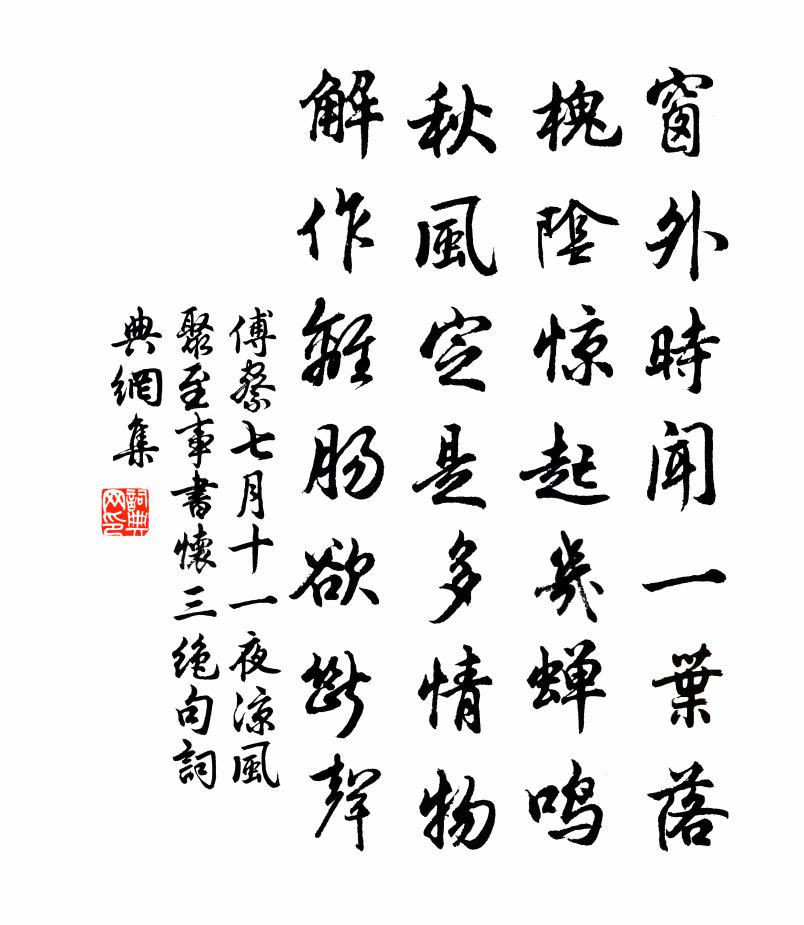 窗外時聞一葉落
槐陰惊起幾蝉鳴
秋風定是多情物
解作離肠欲斷聲
傅察七月十一夜涼風
聚至事書懷三絶句詞
典網集
詞典网印